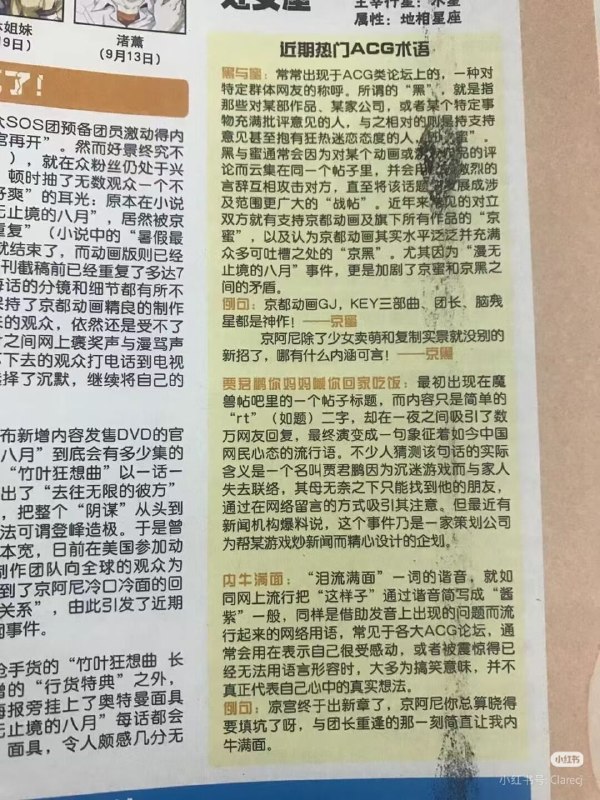 处女座
主宰行星：水星
属性：地相星座
姐妹
9日）
渚薰
（9月13日）
了！
SOS团预备团员激动得内
宫再开”。然而好景终究不
），就在众粉丝仍处于兴
顿时抽了无数观众一个不
舒爽”的耳光：原本在小说
无止境的八月”，居然被京
重复”（小说中的“暑假最
就结束了，而动画版则已经
刊截稿前已经重复了多达7
每话的分镜和细节都有所不
保持了京都动画精良的制作
来的观众，依然还是受不了
时之间网上褒奖声与漫骂声
下去的观众打电话到电视
选择了沉默，继续将自己的
布新增内容发售DVD的官
八月”到底会有多少集的
“竹叶狂想曲”以一话一
出了“去往无限的彼方”
，把整个“阴谋”从头到
法可谓登峰造极。于是曾
本宽，日前在美国参加动
制作团队向全球的观众为
到了京阿尼冷口冷面的回
关系”，由此引发了近期
事件。
抢手货的“竹叶狂想曲 长
增的“行货特典”之外，
海报旁挂上了奥特曼面具
无止境的八月”每话都会
面具，令人颇感几分无
近期热门ACG术语
黑与蜜：常常出现于ACG类论坛上的，一种对
特定群体网友的称呼。所谓的“黑”，就是指
那些对某部作品、某家公司，或者某个特定事
物充满批评意见的人，与之相对的则是持支持
意见甚至抱有狂热迷恋态度的人，即“蜜”。
黑与蜜通常会因为对某个动画或游戏作品的评
论而云集在同一个帖子里，并会用激烈的
言辞互相攻击对方，直至将该话题发展成涉
及范围更广大的“战帖”。近年来常见的对立
双方就有支持京都动画及旗下所有作品的“京
蜜”，以及认为京都动画其实水平泛泛并充满
众多可吐槽之处的“京黑”。尤其因为“漫无
止境的八月”事件，更是加剧了京蜜和京黑之
间的矛盾。
例句：京都动画GJ，KEY三部曲、团长、脑残
星都是神作！——京蜜
京阿尼除了少女卖萌和复制实景就没别的
新招了，哪有什么内涵可言！——京黑
贾君鹏你妈妈喊你回家吃饭：最初出现在魔
兽帖吧里的一个帖子标题，而内容只是简单的
“rt”（如题）二字，却在一夜之间吸引了数
万网友回复，最终演变成一句象征着如今中国
网民心态的流行语。不少人猜测该句话的实际
含义是一个名叫贾君鹏因为沉迷游戏而与家人
失去联络，其母无奈之下只能找到他的朋友，
通过在网络留言的方式吸引其注意。但最近有
新闻机构爆料说，这个事件乃是一家策划公司
为帮某游戏炒新闻而精心设计的企划。
内牛满面：“泪流满面”一词的谐音，就如
同网上流行把“这样子”通过谐音简写成“酱
紫”一般，同样是借助发音上出现的问题而流
行起来的网络用语，常见于各大ACG论坛，通
常会用在表示自己很受感动，或者被震惊得已
经无法用语言形容时，大多为搞笑意味，并不
真正代表自己心中的真实想法。
例句：凉宫终于出新章了，京阿尼你总算晓得
要填坑了呀，与团长重逢的那一刻简直让我内
牛满面。
小红书
小红书号：Clarecj